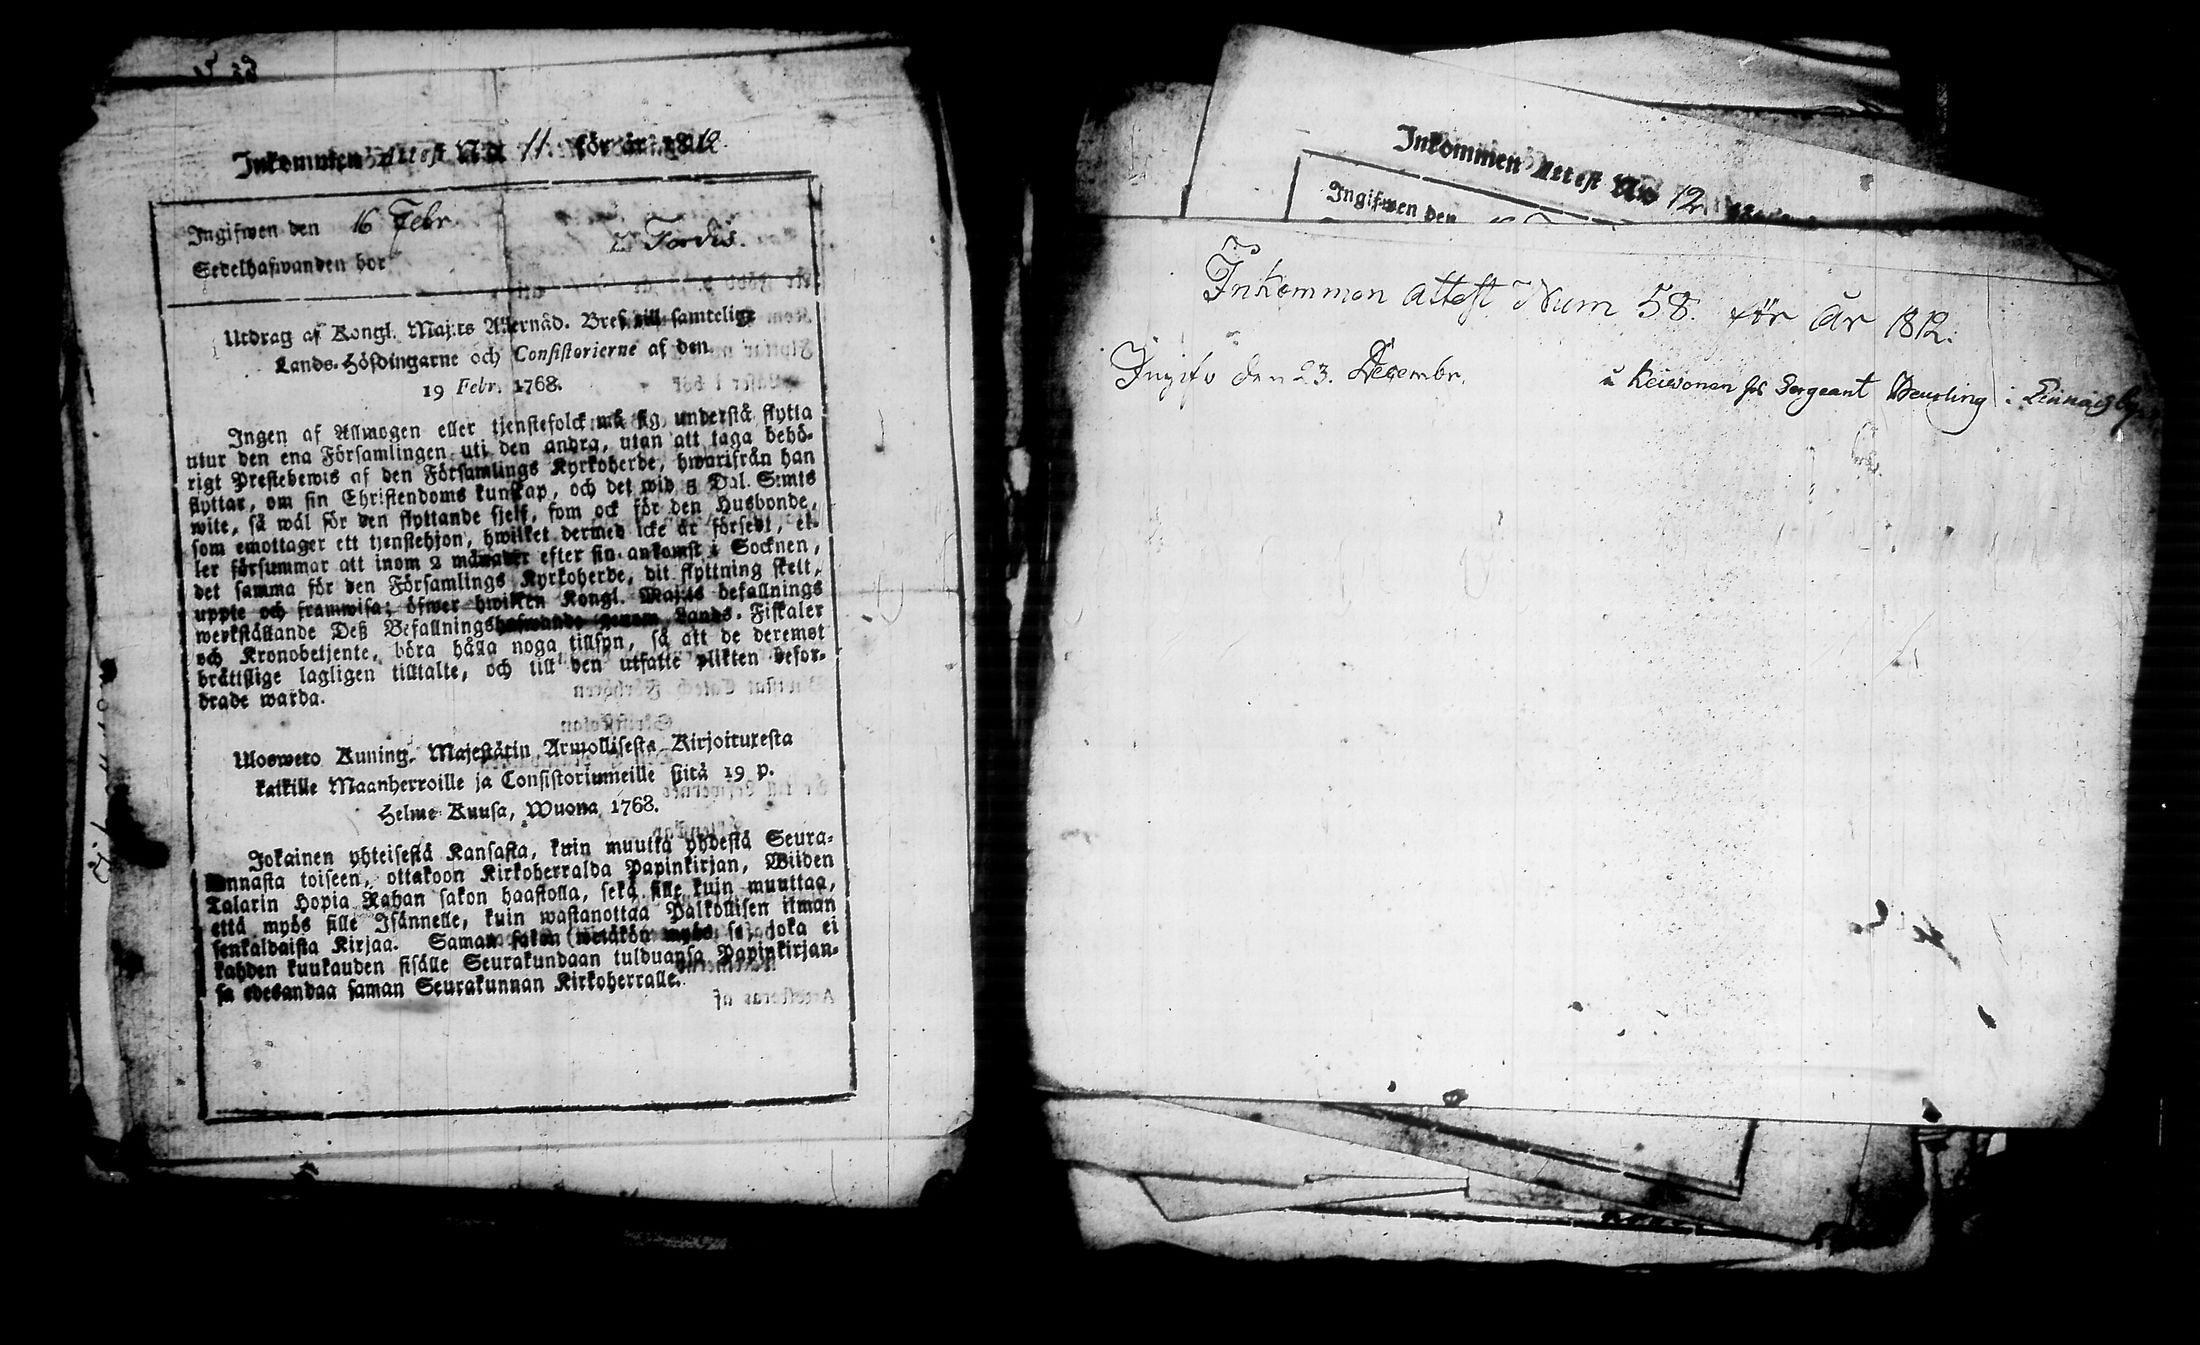 Inkommen Attest N:o 11. för år 1812.
Ingifwen den 16 Febr.
Sedelhafwanden bor
Utdrag af Kongl. Maj:ts Allernåd. Bref till samtelige
Lands-Höfdingarne och Consistorierne af den
19 Febr. 1768.
Ingen af Allmogen eller tjenstefolck må sig understå flytta
utur den ena Församlingen uti den andra, utan att taga behö-
rigt Prestebewis af den Församlings Kyrkoherde, hwarifrån han
flyttar, om sin Christendoms kunskap, och det wid 5 Dal. S:mts
wite, så wäl för den flyttande sjelf, som ock för den Husbonde,
som emottager ett tjenstehjon, hwilket dermed icke är försedt, el-
ler försummar att inom 2 månader efter sin ankomst i Socknen,
det samma för den Församlings Kyrkoherde, dit flyttning skett,
uppte och framwisa; öfwer hwilken Kongl. Maj:ts befallnings
werkställande Deß Befallningshafwande genom Lands-Fiskaler
och Kronobetjente, böra hålla noga tillsyn, så att de deremot
bråttslige lagligen tilltalte, och till den utsatte plikten befor-
drade warda.
Uloswero Kuning. Majestätin Armollisesta Kirjoituxesta
kaikille Maanherroille ja Consistoriumeille siitä 19 p.
Helme-Kuusa, Wuona 1768.
Jokainen yhteisestä Kansasta, kuin muutta yhdestä Seura-
kunnasta toiseen, ottakoon Kirkoherralda Papinkirjan, Wiiden
Talarin Hopia Rahan sakon haastolla, sekä sille kuin muuttaa,
että myös sille Isännelle, kuin wastanottaa Palkollisen ilman
senkaldaista Kirjaa. Saman sakon wetäkön myös se, joka ei
kahden kuukauden sisälle Seurakundaan tulduansa Papinkirjan-
sa edesandaa saman Seurakunnan Kirkoherralle.
Inkommen Attest N:o 12
Ingifwen den
Inkommen attest Num 58. för år 1812.
Ingifv den 23. Decembr.
Sergeant